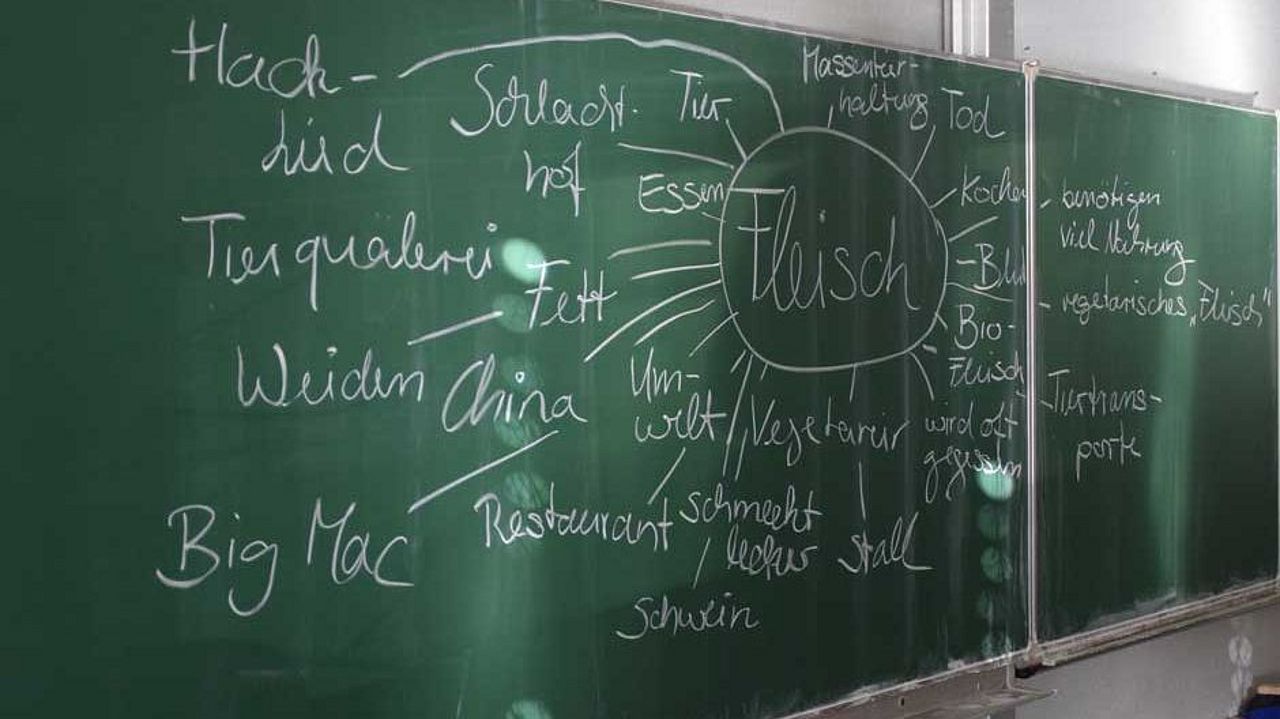 Hack-
Schlacht-
hof
Tier
Massentier-
haltung
Tod
Essen
Fleisch
Koche
benötigen
viel Nahrung
Tierquälerei
Fett
Blu
vegetarisches „Fleisch"
Bio-
Fleisch
Weiden
China
Um-
welt
Vegetarier
wird oft
gegessen
Tiertrans-
porte
Big Mac
Restaurant
schmeckt
lecker
Stall
Schwein